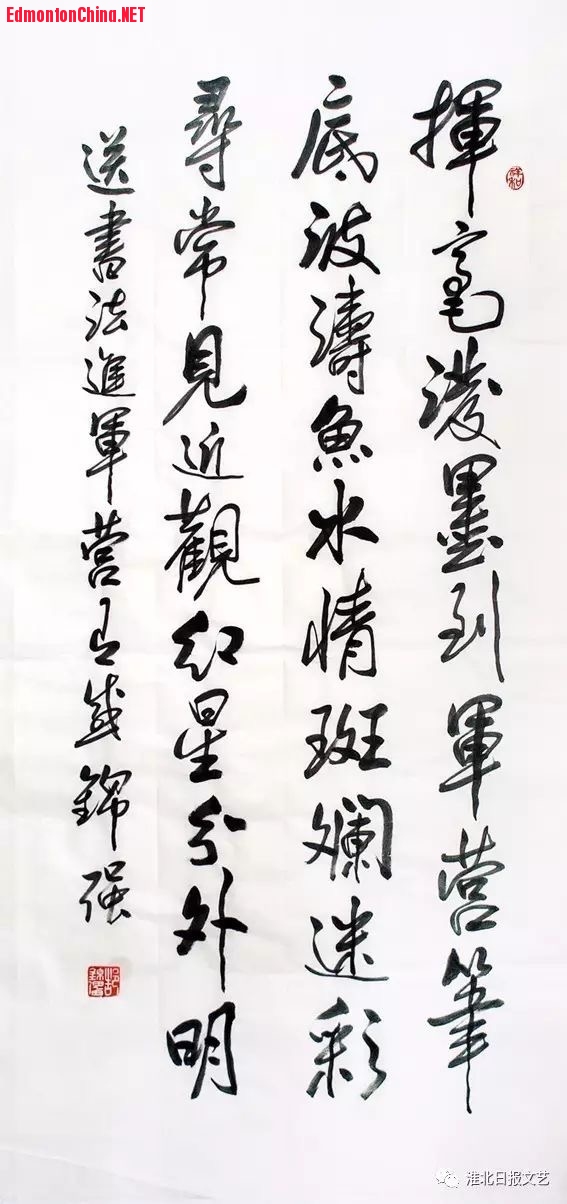 EdmontonChina.NET
揮毫潑墨到軍營筆
底波濤魚水情斑斕迷彩
尋常見近觀紅星分外明
送書法進軍營有感錦强
淮北日报文艺